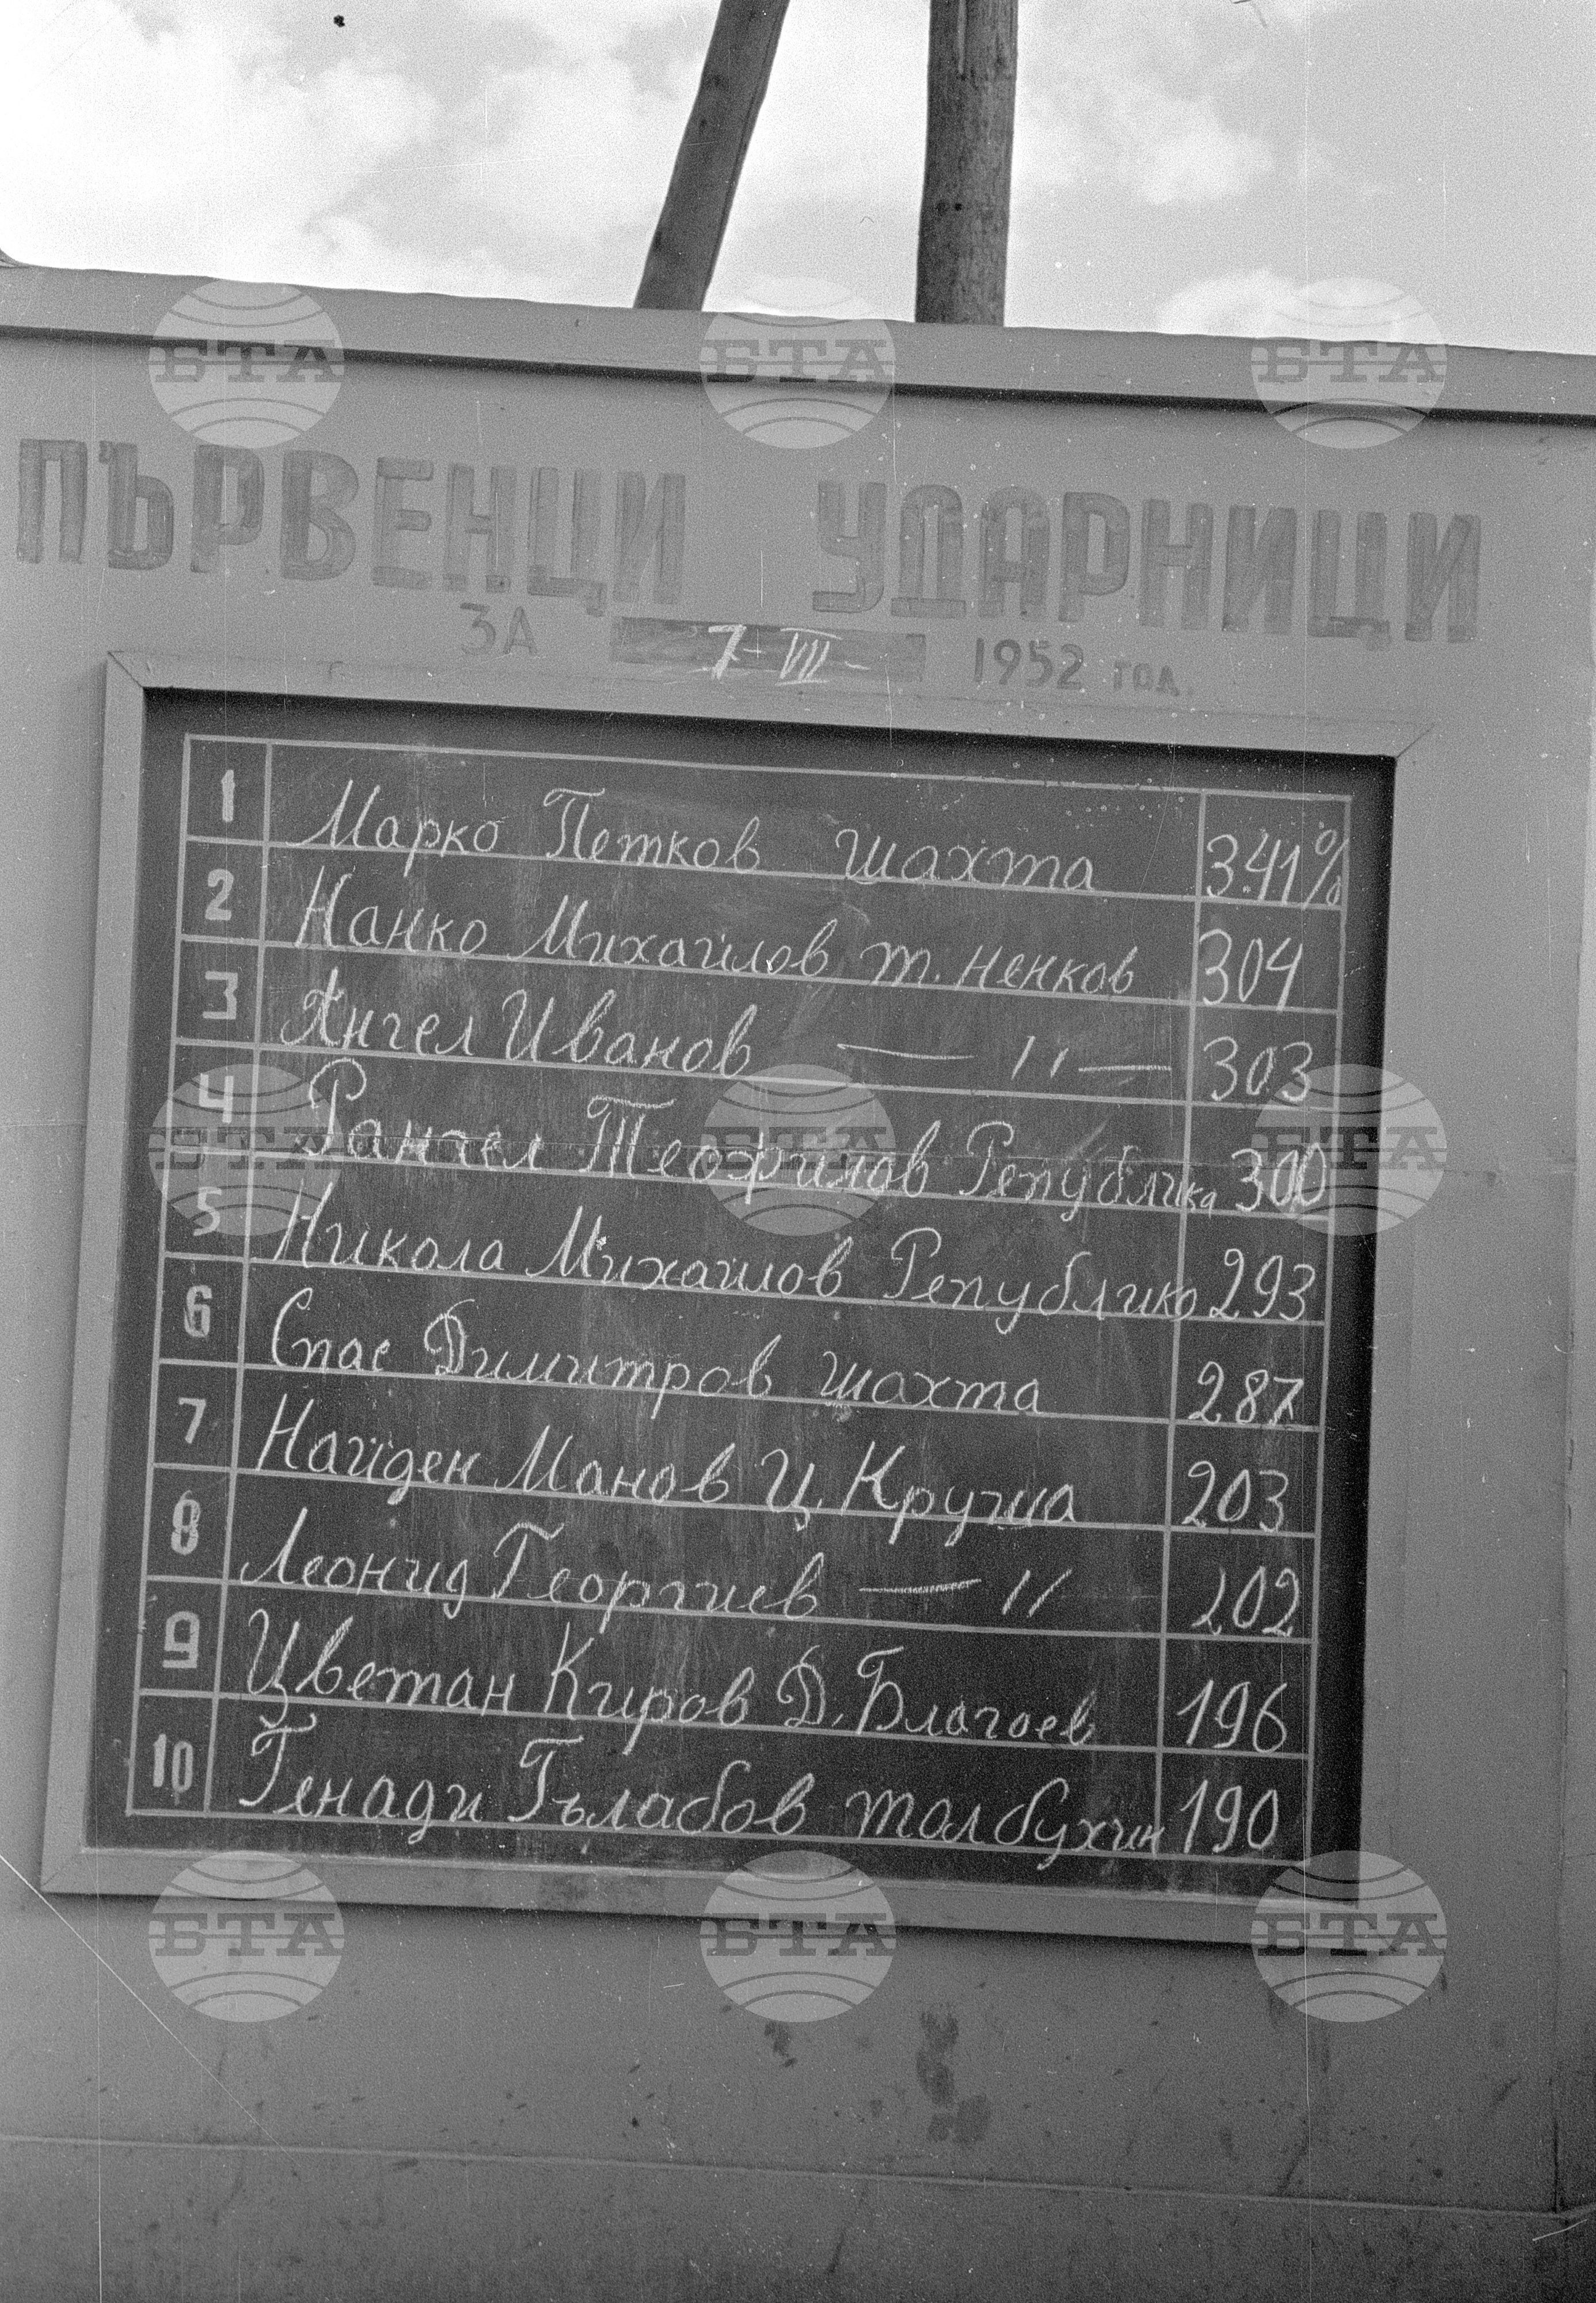 ПЪРВЕНЦИ УДАРНИЦИ
ЗА 7-VII- 1952 год.
1 Марко Петков шахта 3.41%
2 Нанко Михайлов т. ненков 304
3 Ангел Иванов — " — 303
4 Рангел Теофилов Република 300
5 Никола Михайлов Републико 293
6 Спас Димитров шахта 287
7 Найден Манов Ц. Круша 203
8 Леонид Георгиев — " 202
9 Цветан Киров Д. Благоев 196
10 Генади Гълабов толбухин 190
БТА БТА БТА
БТА БТА БТА
БТА БТА БТА